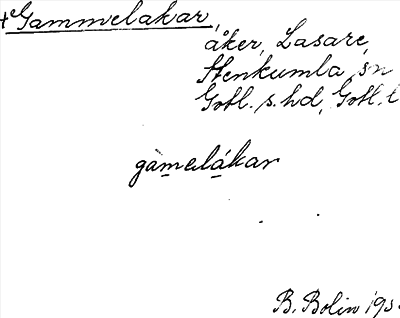 + Gammelakar,
åker, Lasare,
Stenkumla sn
Gotl. s. hd, Gotl. l
gamelákar
B. Bolin 193